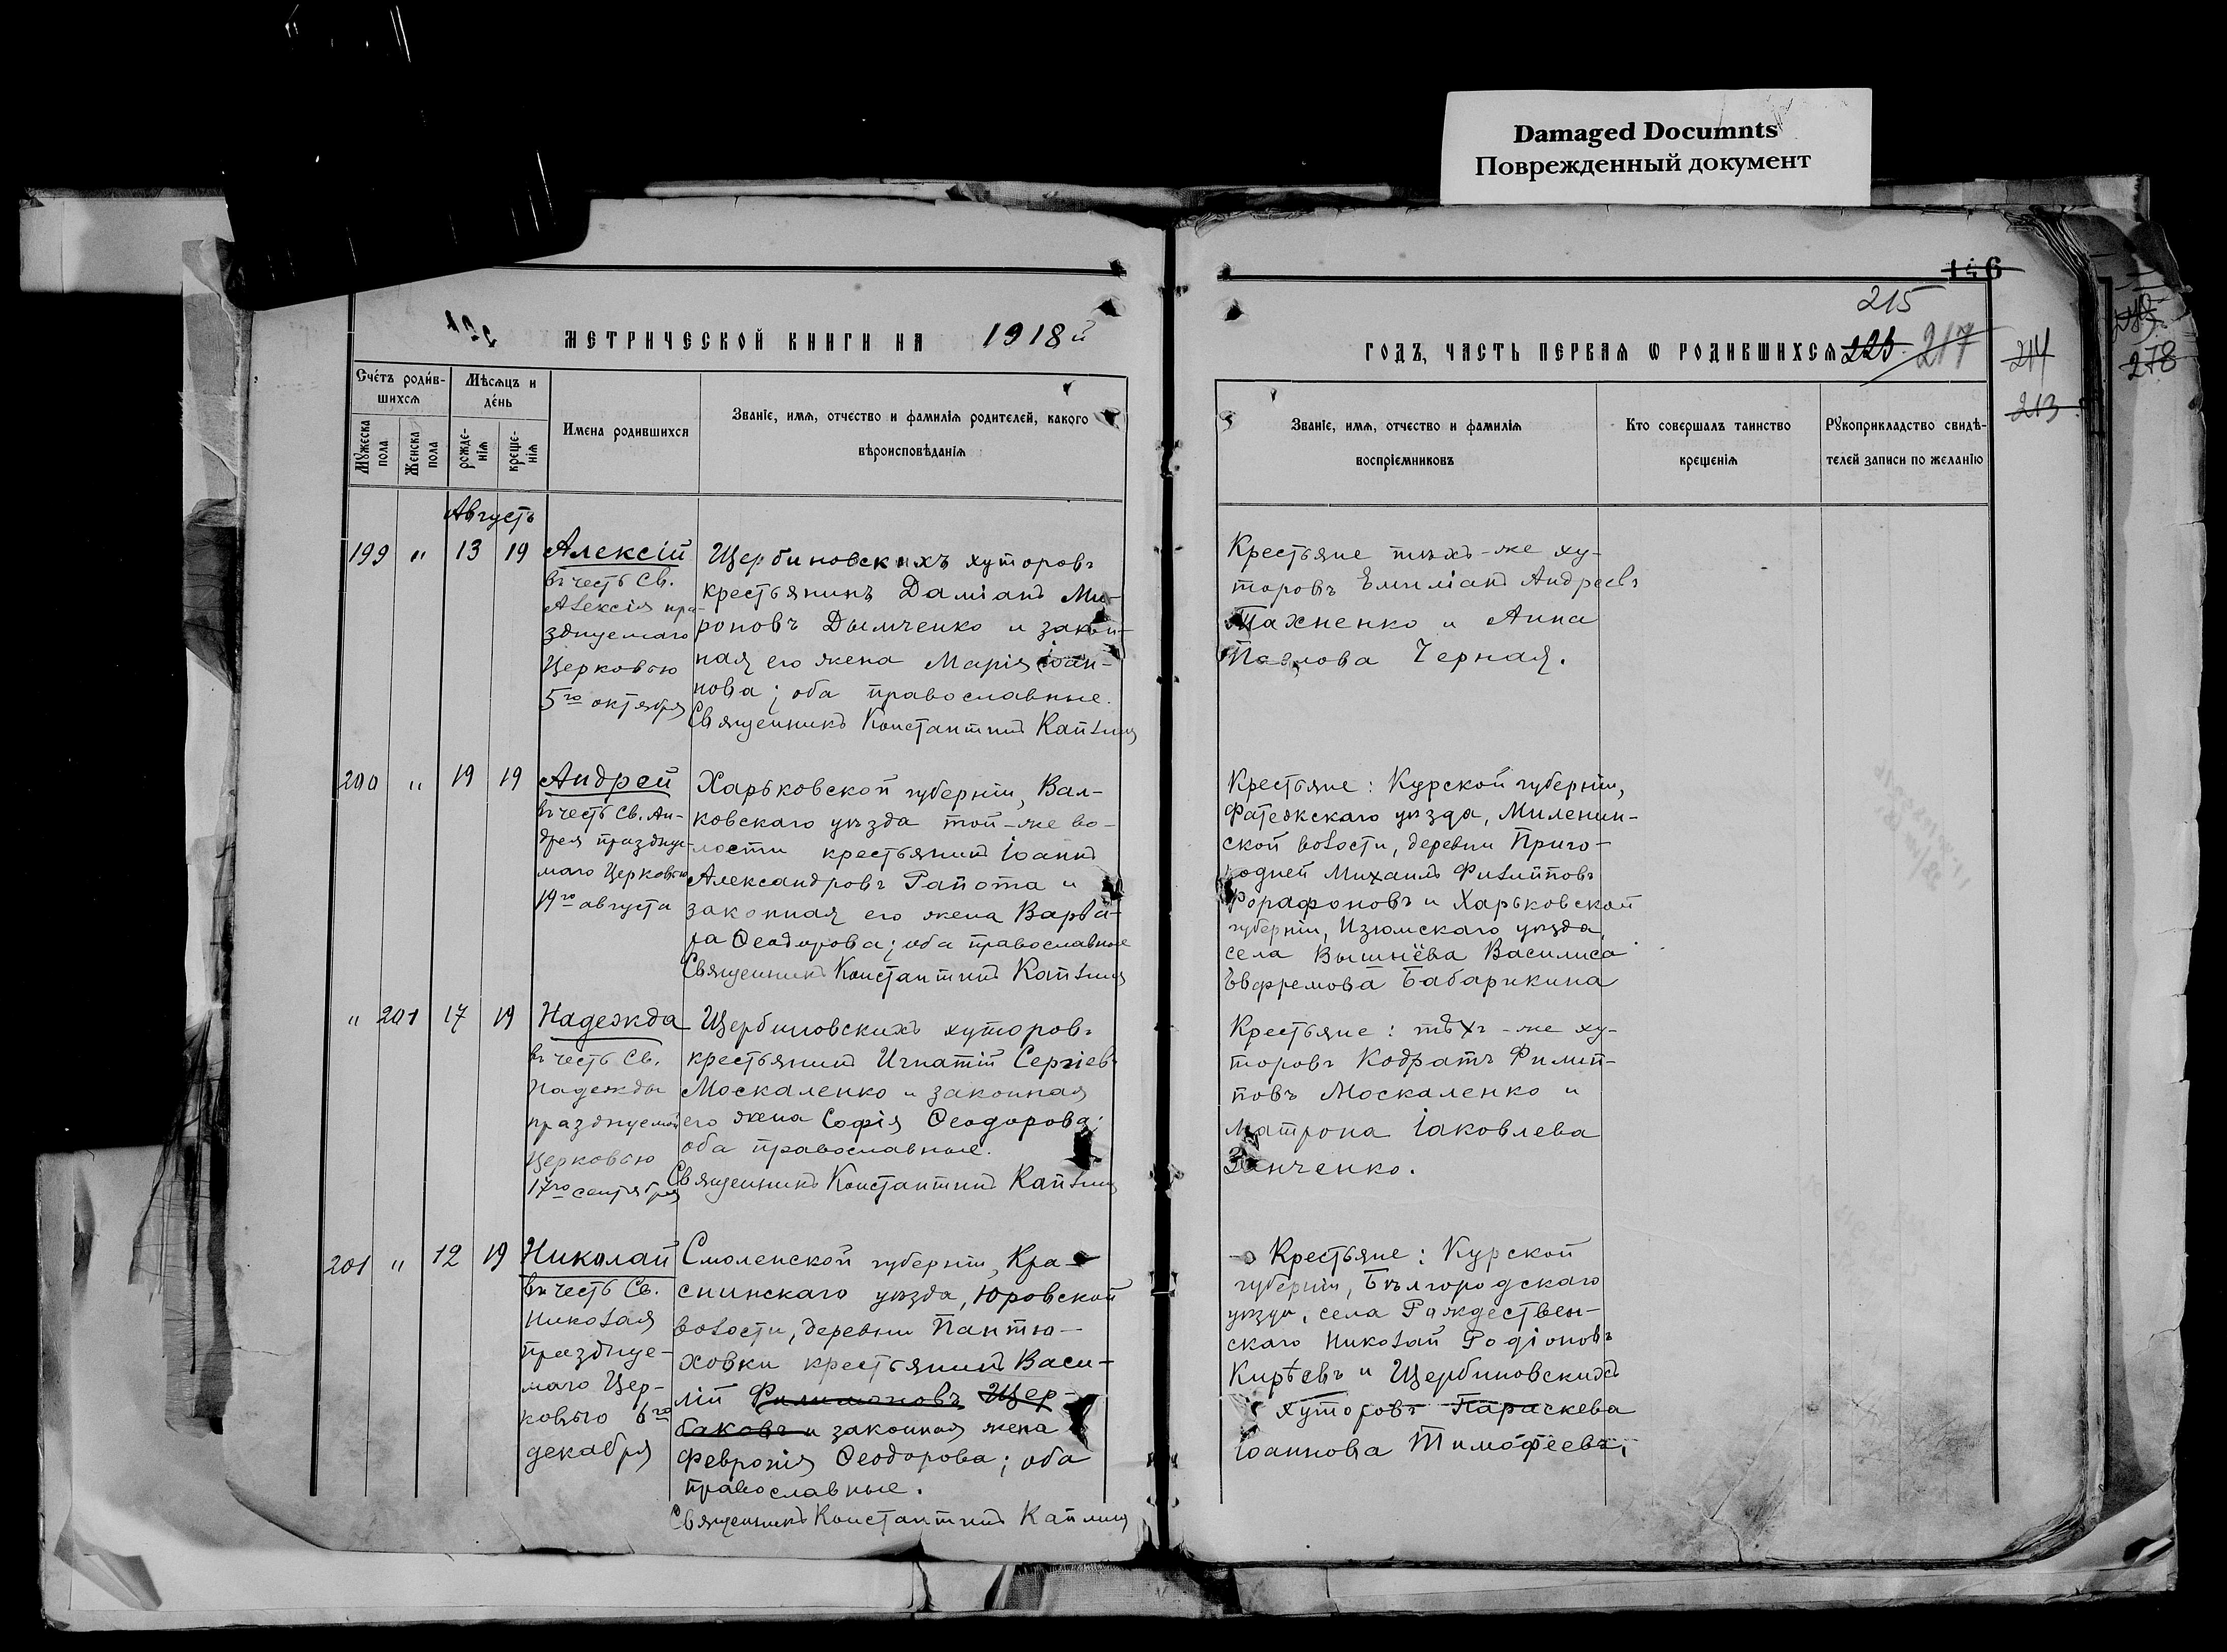 Damaged Documnts
Поврежденный документ
146
215
МЕТРИЧЕСКОЙ КНИГИ НА 1918й
ГОДЪ, ЧАСТЬ ПЕРВАЯ Ѡ РОДИВШИХСЯ 217
214
278
213
Сче́тъ роди́в-
шихся
Мѣсяцъ и
де́нь
Мужеска
пола
Женска
пола
рожде-
нія
креще-
нія
Имена родившихся
Званіе, имя, отчество и фамилія родителей, какого
вѣроисповѣданія
Званіе, имя, отчество и фамилія
воспріемниковъ
Кто совершалъ таинство
крещенія
Рукоприкладство свидѣ-
телей записи по желанію
Августъ
199 " 13 19 Алексій
въ честь Св.
Алексія пра-
зднуемаго
Церковью
5го октября
Щербиновскихъ хуторовъ
крестьянинъ Даміанъ Ми-
роновъ Дымченко и закон-
ная его жена Марія Іоан-
нова; оба православные.
Священникъ Константинъ Каплинъ
Крестьяне тѣхъ-же ху-
торовъ Емиліанъ Андреевъ
Тахненко и Анна
Павлова Черная.
200 " 19 19 Андрей
въ честь Св. Ан-
дрея праздну-
маго Церковью
19го августа
Харьковской губерніи, Вал-
ковскаго уѣзда той-же во-
лости крестьянинъ Іоаннъ
Александровъ Гапота и
законная его жена Варва-
ра Ѳеодорова; оба православные
Священникъ Константинъ Каплинъ
Крестьяне: Курской губерніи,
Фатежскаго уѣзда, Миленин-
ской волости, деревни Приго-
родней Михаилъ Филипповъ
Форафоновъ и Харьковской
губерніи, Изюмскаго уѣзда,
села Вышнёва Василиса
Ѣвфремова Бабарикина
" 201 17 19 Надежда
въ честь Св.
Надежды
празднуемой
Церковью
17го сентября
Щербиновскихъ хуторовъ
крестьянинъ Игнатій Сергіевъ
Москаленко и законная
его жена Софія Ѳеодорова;
оба православные.
Священникъ Константинъ Каплинъ
Крестьяне: тѣхъ-же ху-
торовъ Кодратъ Филип-
повъ Москаленко и
Матрона Іаковлева
Занченко.
201 " 12 19 Николай
въ честь Св.
Николая
праздуе-
маго Цер-
ковью 6го
декабря
Смоленской губерніи, Кра-
снинскаго уѣзда, Юровской
волости, деревни Пантю-
ховки крестьянинъ Васи-
лій Филимоновъ Щер-
баковъ и законная жена
Февронія Ѳеодорова; оба
православные.
Священникъ Константинъ Каплинъ
Крестьяне: Курской
губерніи, Бѣлгородскаго
уѣзда, села Раждествен-
скаго Николай Родіоновъ
Кирѣевъ и Щербиновскихъ
хуторовъ Параскева
Іоаннова Тимофеева,